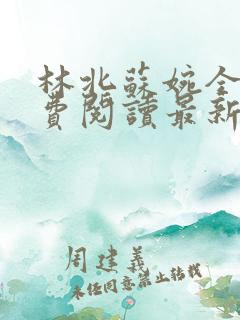 林北蘇婉全
費閱讀最新
周建義
未經同意禁止轉載